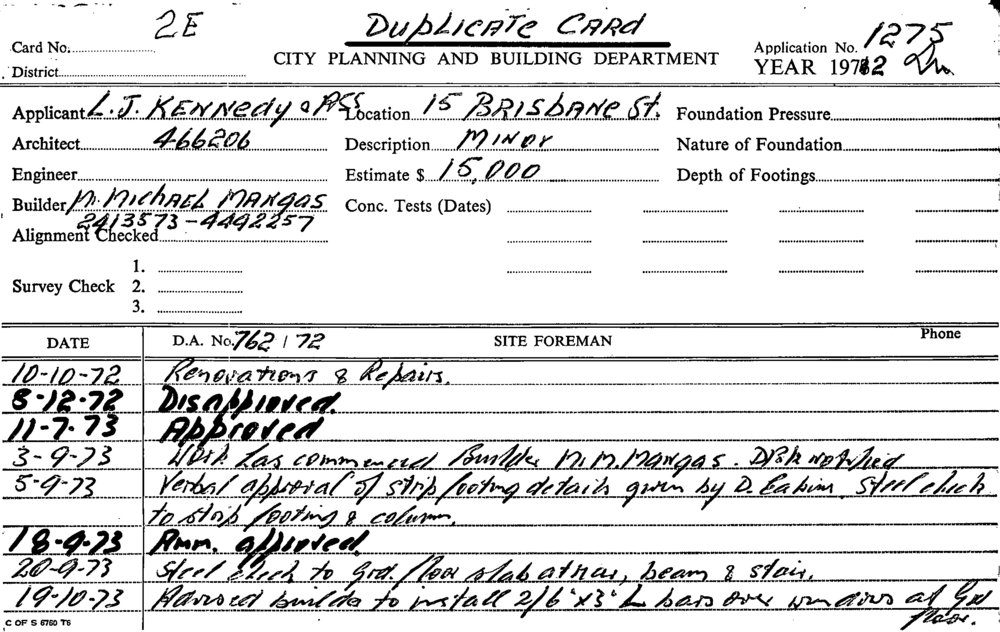 2E DUPLICATE CARD
Card No. CITY PLANNING AND BUILDING DEPARTMENT Application No. 1275
District YEAR 1972
Applicant L. J. KENNEDY & ASS Location 15 BRISBANE St. Foundation Pressure
Architect 466206 Description MINOR Nature of Foundation
Engineer Estimate $ 15,000 Depth of Footings
Builder Mr. MICHAEL MANGAS Conc. Tests (Dates)
2413573-4492257
Alignment Checked
1.
Survey Check 2.
3.
DATE D.A. No. 762 / 72 SITE FOREMAN Phone
10-10-72 Renovations & Repairs.
8-12-72 Disapproved.
11-7-73 Approved
3-9-73 Work has commenced Builder Mr. M. Mangas. notified
5-9-73 Verbal approval of strip footing details given by D. Eakins. Steel check
to strip footing & column.
18-9-73 Amm. approved.
20-9-73 Steel check to Grd. floor slab at rear, beam & stair.
19-10-73 Advised builder to install 2/6"x3" L bars over windows at Grd
floor.
C OF S 6760 T6